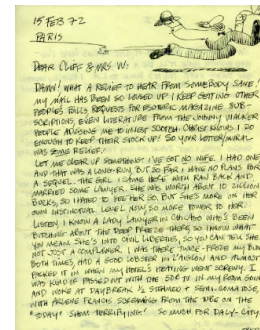 15 FEB 72
PARIS
DEAR CLIFF & MRS. W:
DAMN! WHAT A RELIEF TO HEAR FROM SOMEBODY SANE!
MY MAIL HAS BEEN SO LOUSED UP I KEEP GETTING OTHER
PEOPLE'S BILLS, REQUESTS FOR ESOTERIC MAGAZINE SUB-
SCRIPTIONS, EVEN LITERATURE FROM THE JOHNNY WALKER
PEOPLE ADVISING ME TO INVEST SCOTCH. CHRIST KNOWS I DO
ENOUGH TO KEEP THEIR STOCK UP! SO YOUR LETTER
WAS RELIEF.
LET ME CLEAR UP SOMETHING: I'VE GOT NO WIFE. I HAD ONE
AND THAT WAS A LONG RUN, BUT SO FAR I HAVE NO PLANS FOR
A SEQUEL. THE GIRL I CAME HERE WITH RAN BACK AND
MARRIED SOME LAWYER. SHE WAS WORTH ABOUT 10 ZILLION
BUCKS, SO I HATED TO SEE HER GO, BUT SHE'S MORE IN HER
OWN LEVEL NOW, SO MORE POWER TO HER.
LISTEN, I KNOW A LADY LAWYER IN CHICAGO WHO'S BEEN
BITCHING ABOUT THE DEEP FREEZE THERE, SO I KNOW WHAT
YOU MEAN. SHE'S INTO CIVIL LIBERTIES, SO YOU CAN TELL SHE
NOT JUST A I WAS THERE TWICE - FROZE MY BUN
BOTH TIMES, HAD A GOOD LOBSTER IN AND ALMOST
PACKED IT IN WHEN MY HOTEL'S HEATING WENT SCREWY. I
WAS KIND OF PASSED OUT WITH THE TV IN MY ROOM GOIN
AND WOKE AT DAYBREAK, ½ STEAMED & SEMI-COMATOSE,
WITH ARLENE FRANCIS SCREAMING FROM THE TUBE ON THE
"TODAY" SHOW. TERRIFYING! SO MUCH FOR DALY-CITY.